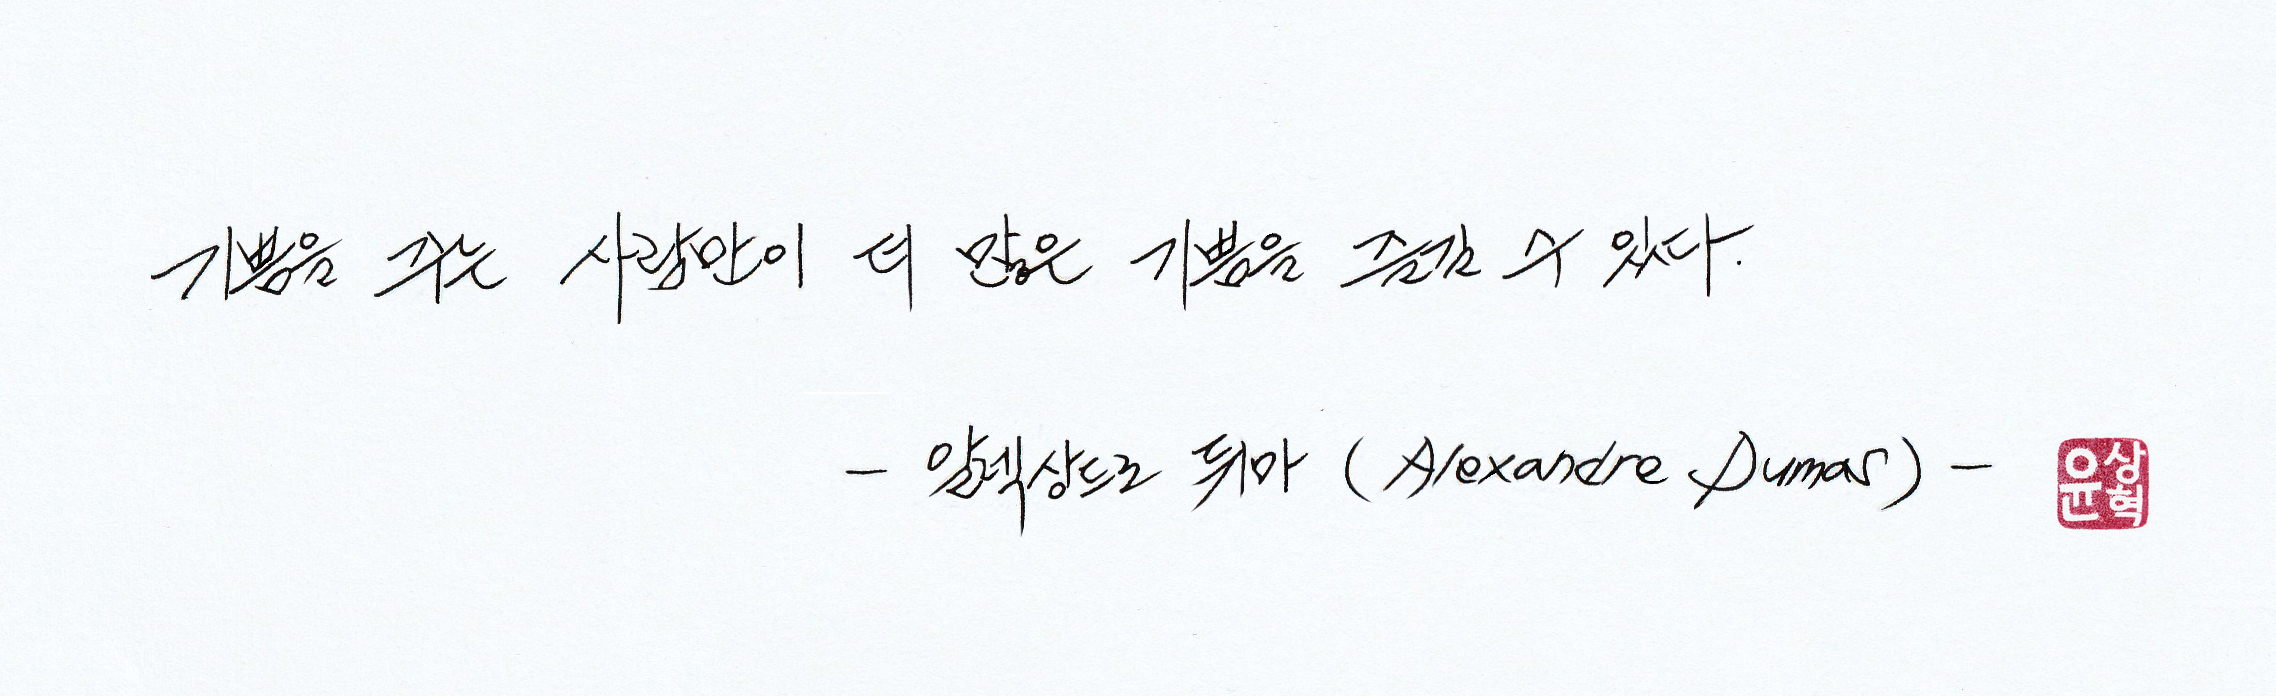 기쁨을 주는 사람만이 더 많은 기쁨을 즐길 수 있다.
- 알렉상드르 뒤마 (Alexandre Dumas) -
윤상혁